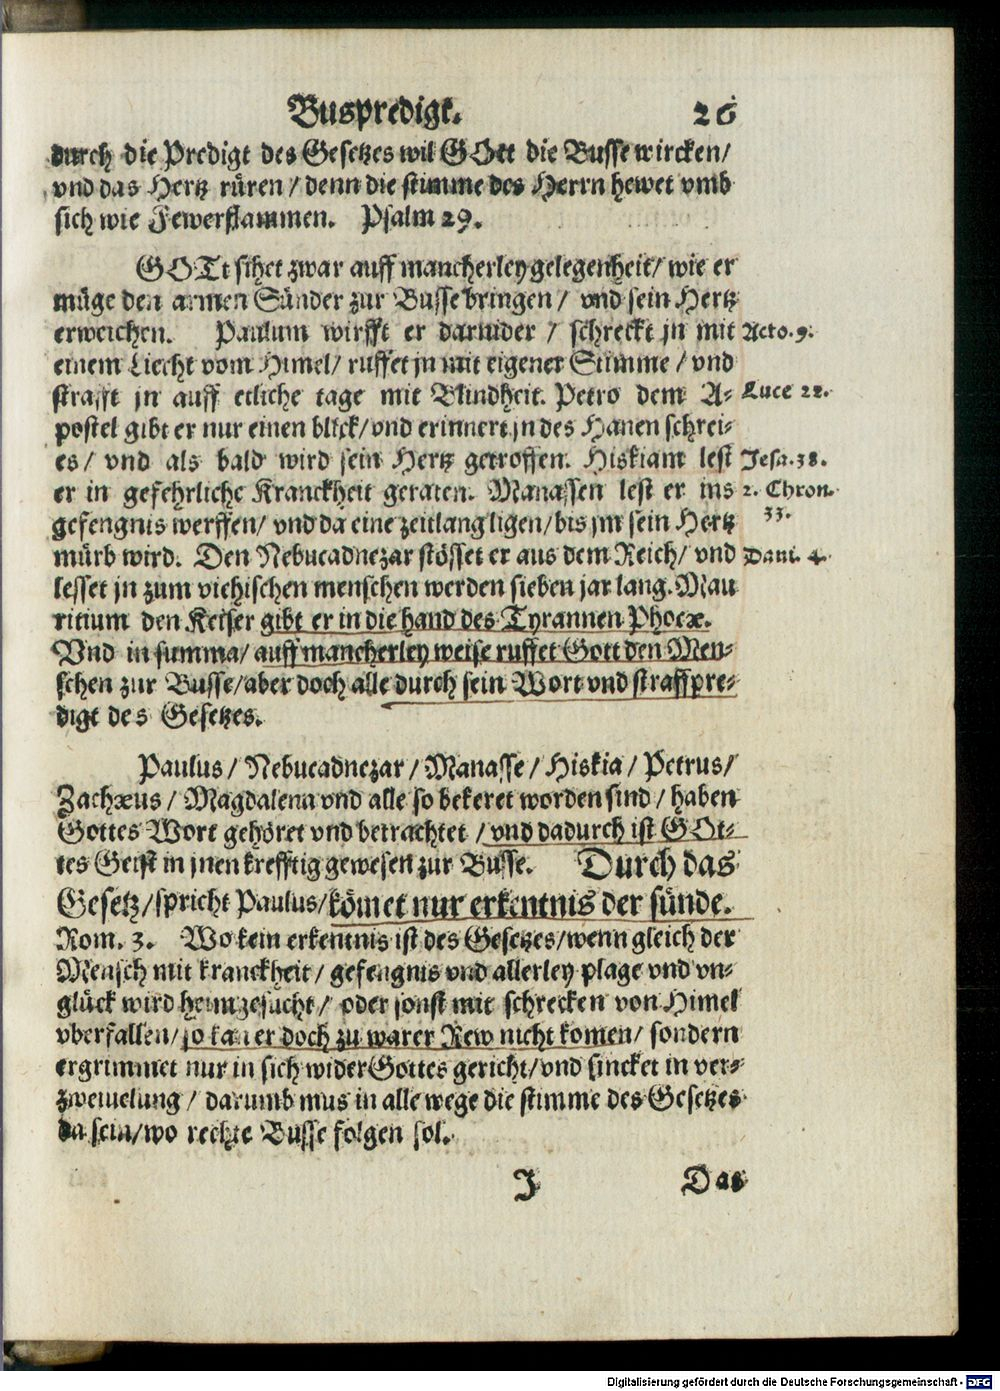 Buspredigt. 26
durch die Predigt des Gesetzes wil GOtt die Busse wircken/
vnd das Hertz rüren / denn die stimme des Herrn hewet vmb
sich wie Fewerflammen. Psalm 29.
GOTt sihet zwar auff mancherley gelegenheit/ wie er
müge den armen Sünder zur Busse bringen / vnd sein Hertz
erweichen. Paulum wirfft er darnider / schreckt jn mit Acto. 9.
einem Liecht vom Himel/ ruffet jn mit eigener Stimme / vnd
strafft jn auff etliche tage mit Blindheit. Petro dem A- Luce 22.
postel gibt er nur einen blick/ vnd erinnert jn des Hanen schrei-
es/ vnd als bald wird sein Hertz getroffen. Hiskiam lest Jesa. 38.
er in gefehrliche Kranckheit geraten. Manassen lest er ins 2. Chron.
gefengnis werffen/ vnd da eine zeitlang ligen/ bis jm sein Hertz 33.
mürb wird. Den Nebucadnezar stösset er aus dem Reich/ vnd Dani. 4.
lesset jn zum viehischen menschen werden sieben jar lang. Mau
ritium den Keiser gibt er in die hand des Tyrannen Phocæ.
Vnd in summa/ auff mancherley weise ruffet Gott den Men-
schen zur Busse/ aber doch alle durch sein Wort vnd straffpre-
digt des Gesetzes.
Paulus / Nebucadnezar / Manasse / Hiskia / Petrus/
Zachæus / Magdalena vnd alle so bekeret worden sind / haben
Gottes Wort gehöret vnd betrachtet / vnd dadurch ist GOt-
tes Geist in jnen krefftig gewesen zur Busse. Durch das
Gesetz/ spricht Paulus/ kömet nur erkentnis der sünde.
Rom. 3. Wo kein erkentnis ist des Gesetzes/ wenn gleich der
Mensch mit kranckheit / gefengnis vnd allerley plage vnd vn-
glück wird heimgesucht / oder sonst mit schrecken von Himel
vberfallen/ so kan er doch zu warer Rew nicht komen/ sondern
ergrimmet nur in sich wider Gottes gericht/ vnd sincket in ver-
zweiuelung / darumb mus in alle wege die stimme des Gesetzes
da sein/ wo rechte Busse folgen sol.
J Das
Digitalisierung gefördert durch die Deutsche Forschungsgemeinschaft - DFG